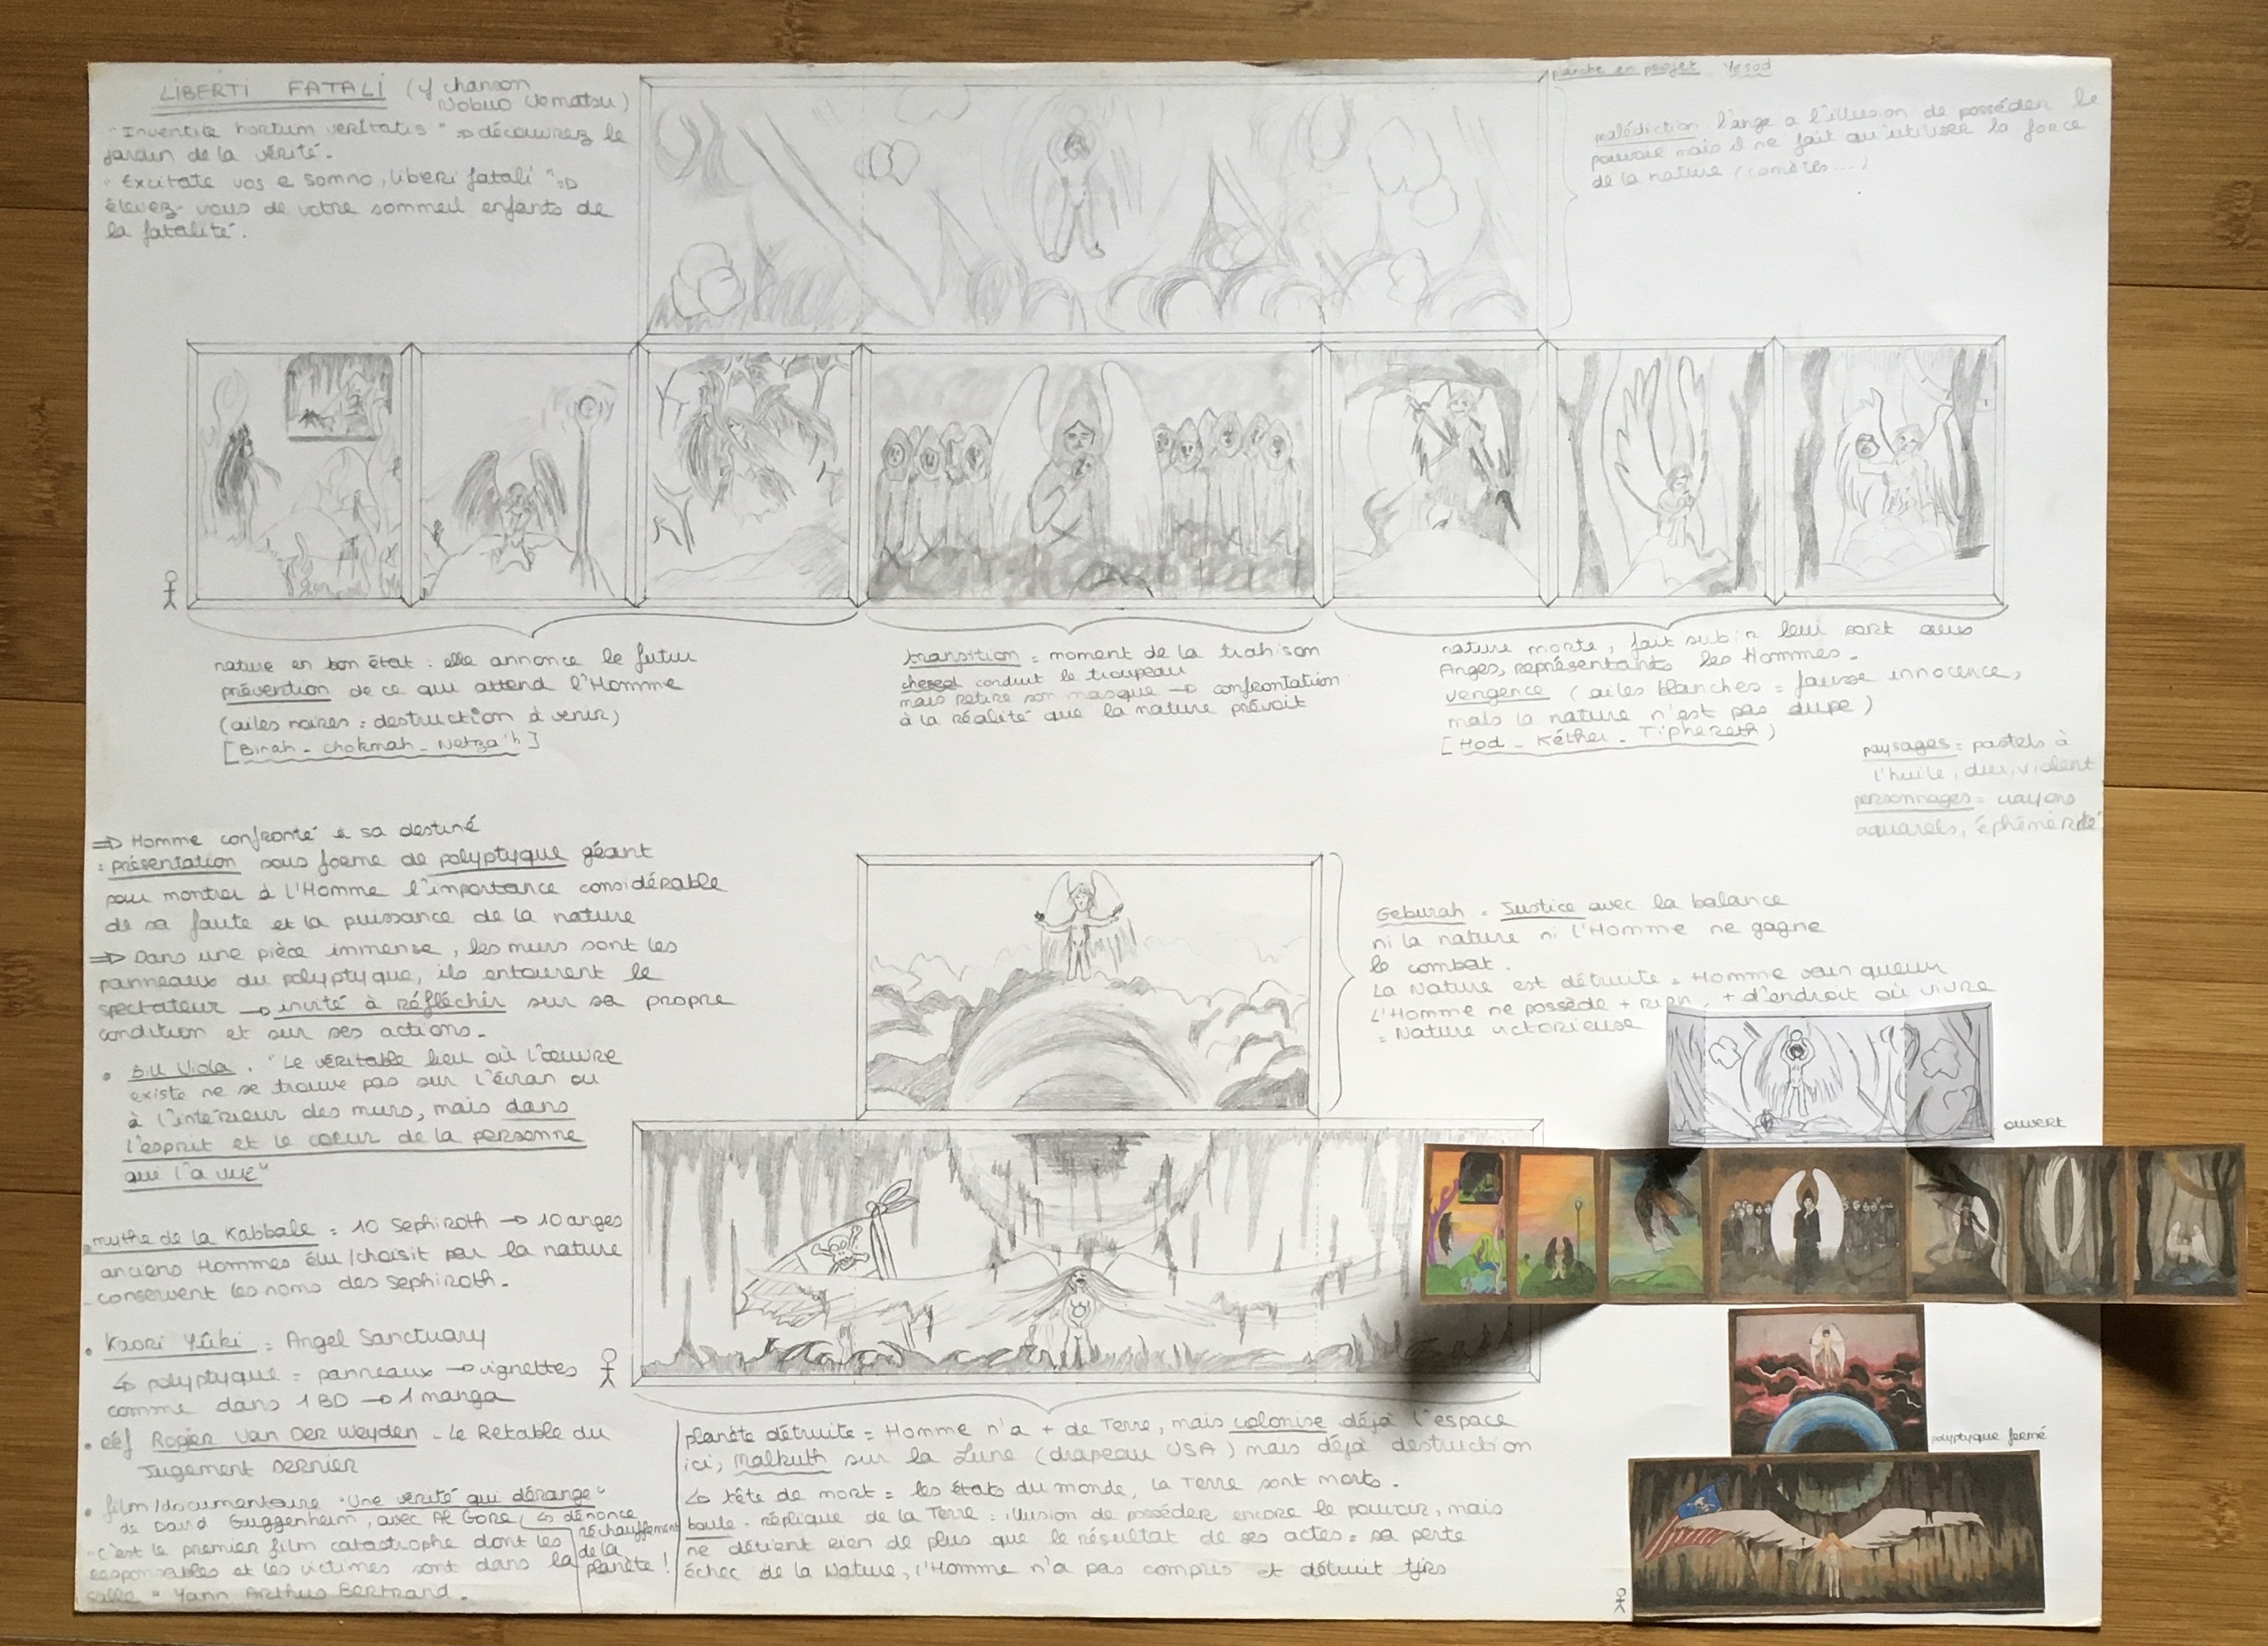 LIBERTI FATALI (cf chanson
Nobuo Uematsu)
"Invenite hortum veritatis" => découvrez le
jardin de la vérité.
"Excitate vos e somno, liberi fatali" =>
élevez-vous de votre sommeil enfants de
la fatalité.
planche en projet Yesod
malédiction l'ange a l'illusion de posséder le
pouvoir mais il ne fait qu'utiliser la force
de la nature (comètes...)
nature en bon état : elle annonce le futur
prévention de ce qui attend l'Homme
(ailes noires : destruction à venir)
[Binah - Chokmah - Netza'h]
transition = moment de la trahison
chesed conduit le troupeau
mais retire son masque -> confrontation
à la réalité que la nature prévoit
nature morte, fait subir leur sort aux
Anges, représentants les Hommes.
vengence (ailes blanches = fausse innocence,
mais la nature n'est pas dupe)
[Hod - Kéther - Tiphereth)
paysages = pastels à
l'huile, dur, violent
personnages = crayons
aquarels, éphémèreté
=> Homme confronté à sa destiné
: présentation sous forme de polyptyque géant
pour montrer à l'Homme l'importance considérable
de sa faute et la puissance de la nature
=> Dans une pièce immense, les murs sont les
panneaux du polyptyque, ils entourent le
spectateur -> invité à réfléchir sur sa propre
condition et sur ses actions.
• Bill Viola. "Le véritable lieu où l'œuvre
existe ne se trouve pas sur l'écran ou
à l'intérieur des murs, mais dans
l'esprit et le coeur de la personne
qui l'a vue"
Geburah = Justice avec la balance
ni la nature ni l'Homme ne gagne
le combat.
La Nature est détruite = Homme vainqueur
L'Homme ne possède + rien, + d'endroit où vivre
= Nature victorieuse
ouvert
mythe de la Kabbale = 10 Sephiroth -> 10 anges
anciens Hommes élu/choisit par la nature
conservent les noms des Sephiroth.
• Kaori Yûki = Angel Sanctuary
↳ polyptyque = panneaux -> vignettes
comme dans 1 BD -> 1 manga
• réf Rogier Van Der Weyden - Le Retable du
Jugement Dernier
• film/documentaire "Une vérité qui dérange"
de David Guggenheim, avec Al Gore, ↳ dénonce
réchauffement
de la
planète !
"C'est le premier film catastrophe dont les
responsables et les victimes sont dans la
salle" Yann Arthus Bertrand.
planète détruite = Homme n'a + de Terre, mais colonise déjà l'espace
ici, Malkuth sur la Lune (drapeau USA) mais déjà destruction
↳ tête de mort = les états du monde, la Terre sont morts.
boule. réplique de la Terre : illusion de posséder encore le pouvoir, mais
ne détient rien de plus que le résultat de ses actes = sa perte
échec de la Nature, l'Homme n'a pas compris et détruit tjrs
polyptyque fermé